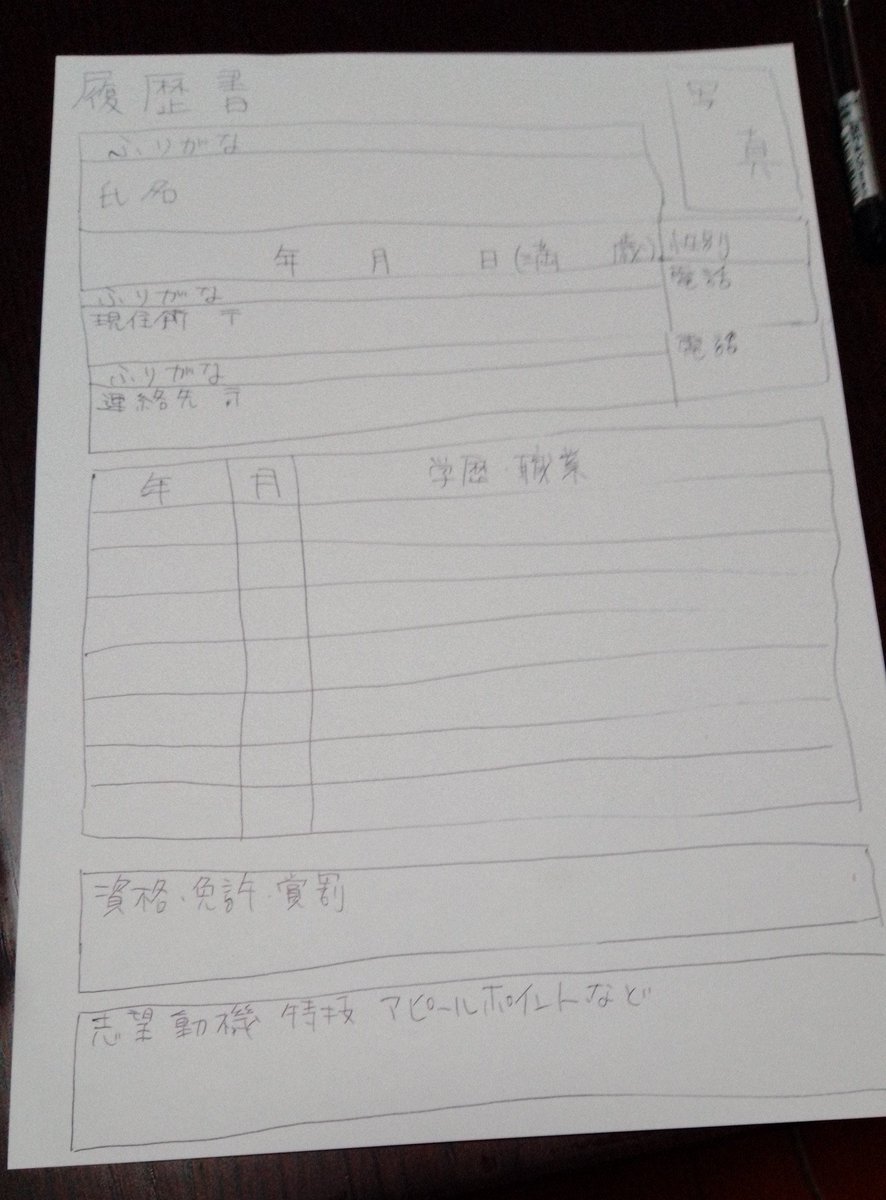 履歴書
写真
ふりがな
氏名
年 月 日(満 歳)
性別
ふりがな
電話
現住所 〒
ふりがな
電話
連絡先 〒
年 月 学歴・職業
資格・免許・賞罰
志望動機 特技 アピールポイントなど